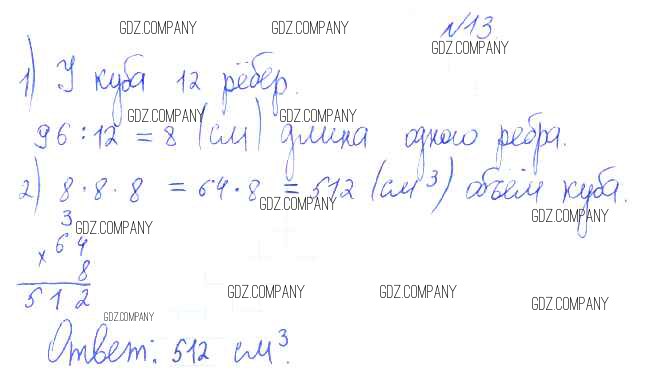 GDZ.COMPANY GDZ.COMPANY №13
GDZ.COMPANY
1) У куба 12 рёбер.
GDZ.COMPANY GDZ.COMPANY
96 : 12 = 8 (см) длина одного ребра.
2) 8 · 8 · 8 = 64 · 8 = 512 (см³) объём куба.
GDZ.COMPANY GDZ.COMPANY
3 GDZ.COMPANY
× 64
8
512
GDZ.COMPANY GDZ.COMPANY GDZ.COMPANY
GDZ.COMPANY
Ответ: 512 см³.